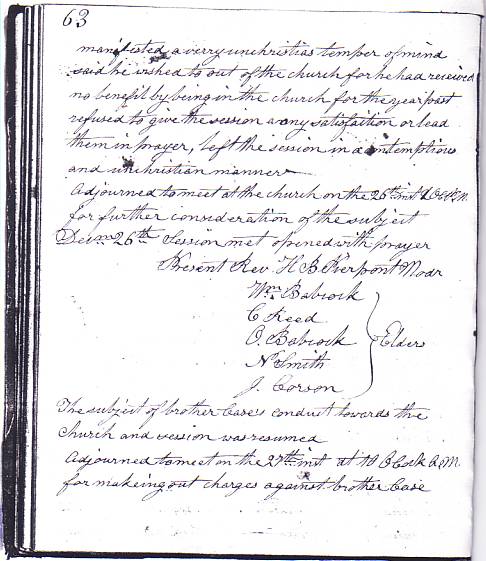 63
manifested a verry unchristias temper of mind
said he wshed to out of the church for he had received
no benefit by being in the church for the year past
refused to give the session a any satisfaition or lead
them in prayer, left the session in a contemptious
and unchristian manner
Adjourned to meet at the church on the 26th inst
for further consideration of the subject
Decm 26th Session met opened with prayer
Present Rev. H B Pierpont Modr
Wm Babcock
C Reed
O. Babcock
N Smith
J. Corson
Elders
The subject of brother Case's conduct towards the
church and session was resumed
Adjourned to meet on the 27th inst at 10 O Clk A.M.
for makeing out charges against brother Case